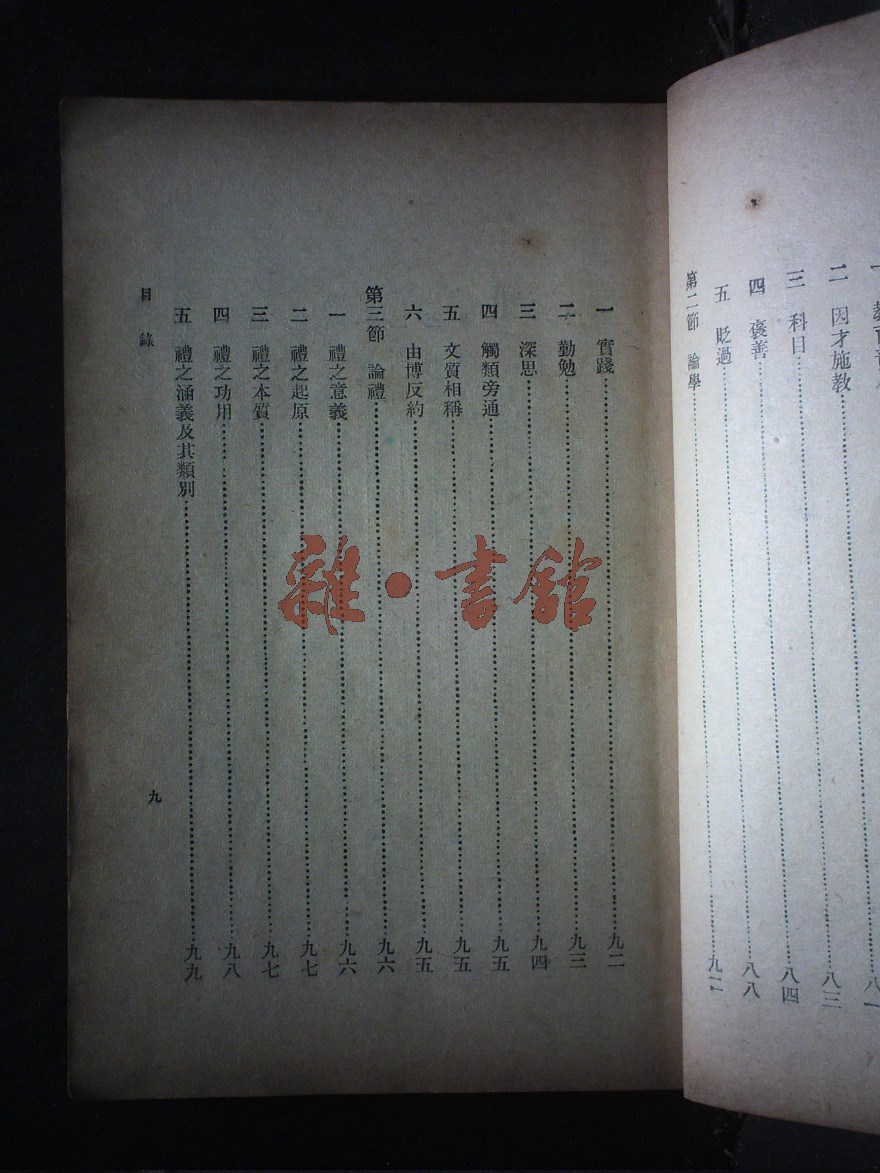 二 因才施教
三 科目 八三
四 褒善 八四
五 貶過 八八
第二節 論學 九二
一 實踐 九二
二 勤勉 九三
三 深思 九四
四 觸類旁通 九五
五 文質相稱 九五
六 由博反約 九五
第三節 論禮 九六
一 禮之意義 九六
二 禮之起原 九七
三 禮之本質 九七
四 禮之功用 九八
五 禮之涵義及其類別 九九
目錄 九
雜·書館